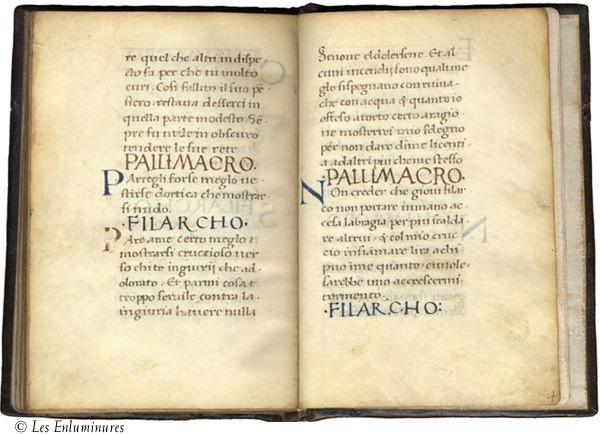 re quel che altri in dispe
cto fa per che tu molto
curi. Cosi fallito il suo pe
siero restava desserci in
quella parte modesto. Se
pre fu utile in obscuro
tendere le sue rete
PALLIMACRO.
Paregli forse meglo ve
stirse dortica che mostrar
si nudo.
·FILARCHO·
Pare ame certo meglo
mostrarsi cruccioso ver
so chi te ingiurii che ad
olorato. Et parmi cosa
troppo servile contra la
ingiuria havere nulla
Senone el dolersene. Et al
cuni incendii sono quali me
glo si spegnano con ruina
che con acqua & quanto io
offeso a torto certo aragio
ne mostrerei mio sdegno
per non dare di me licenti
a ad altri piu che me stesso
PALLIMACRO.
Non creder che giovi filar
co non portare in mano ac
cesa la bragia per piu scalda
re altrui & col mio cruc
cio infiamare lira a chi
puo ime quanto e vuole
sarebbe uno accrescermi
tormento.
·FILARCHO:
© Les Enluminures